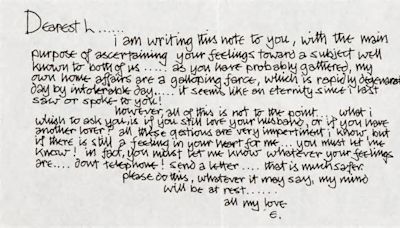 Dearest L......
i am writing this note to you, with the main
purpose of ascertaining your feelings toward a subject well
known to both of us..... as you have probably gathered, my
own home affairs are a galloping farce, which is rapidly degenerate
day by intolerable day..... it seems like an eternity since i last
saw or spoke to you!
however, all of this is not to the point.... what i
whish to ask you is if you still love your husband, or if you have
another lover? all these qestions are very impertinent i know, but
if there is still a feeling in your heart for me... you must let me
know! in fact, you must let me know whatever your feelings
are.... dont telephone! send a letter.... that is much safer.
please do this, whatever it may say, my mind
will be at rest......
all my love
E.